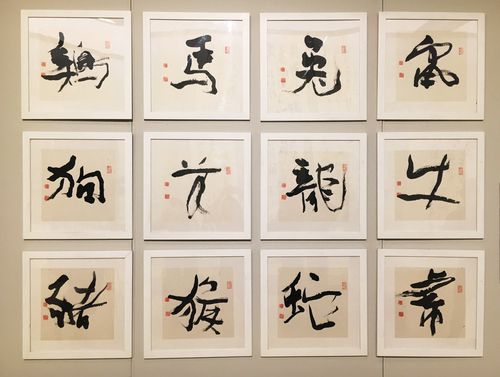 鼠牛虎
兔龍蛇
馬羊猴
鷄狗豬